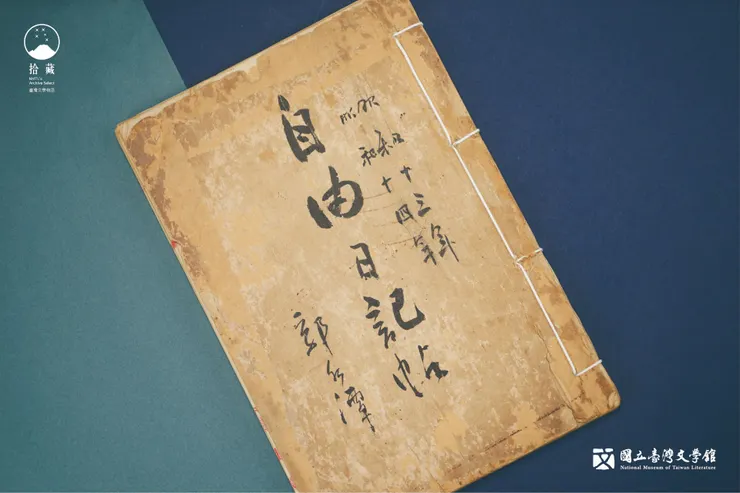 拾藏
臺灣文學物語
昭和十三年
昭和十四年
自由日記帖
郭水潭
國立臺灣文學館
National Museum of Taiwan Literature